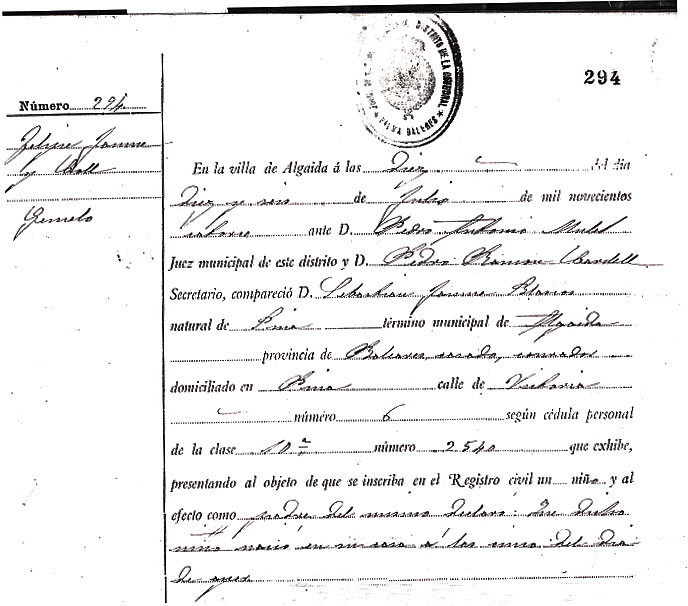 DISTRITO DE LA CATEDRAL
PALMA BALEARES
294
Número 294
Felipe Jaume
y Oliver
Gemelo
En la villa de Algaida á las Diez del día
Diez y seis de Julio de mil novecientos
catorce ante D. Pedro Antonio Mulet
Juez municipal de este distrito y D. Pedro Ramon Cardell
Secretario, compareció D. Sebastian Jaume
natural de Pina término municipal de Algaida
provincia de Baleares, casado,
domiciliado en Pina calle de Victoria
número 6 según cédula personal
de la clase 10ª número 2540 que exhibe,
presentando al objeto de que se inscriba en el Registro civil un niño y al
efecto como padre del mismo declaró: Que dicho
niño nació en su casa á las cinco del dia
de ayer